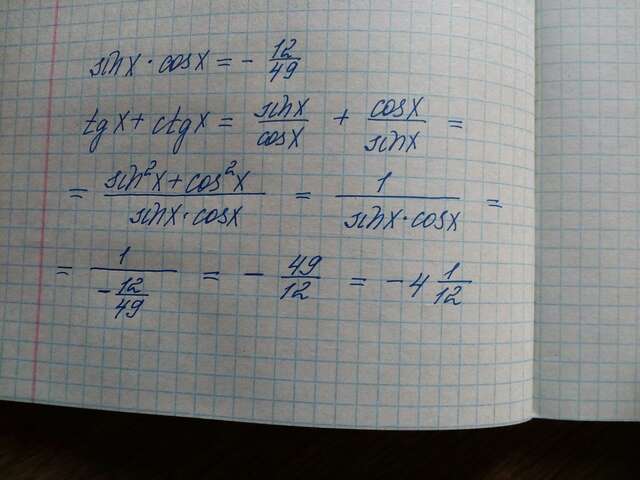 sinx · cosx = - 12/49
tgx + ctgx = sinx/cosx + cosx/sinx =
= (sin²x + cos²x)/(sinx · cosx) = 1/(sinx · cosx) =
= 1/(-12/49) = - 49/12 = -4 1/12